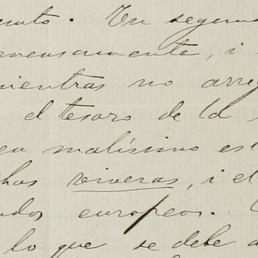 . En segun
mensamente, i
mientras no arre
el tesoro de Ud
en malísimo es
has viveras, i el
dos europeos.
lo que se debe a